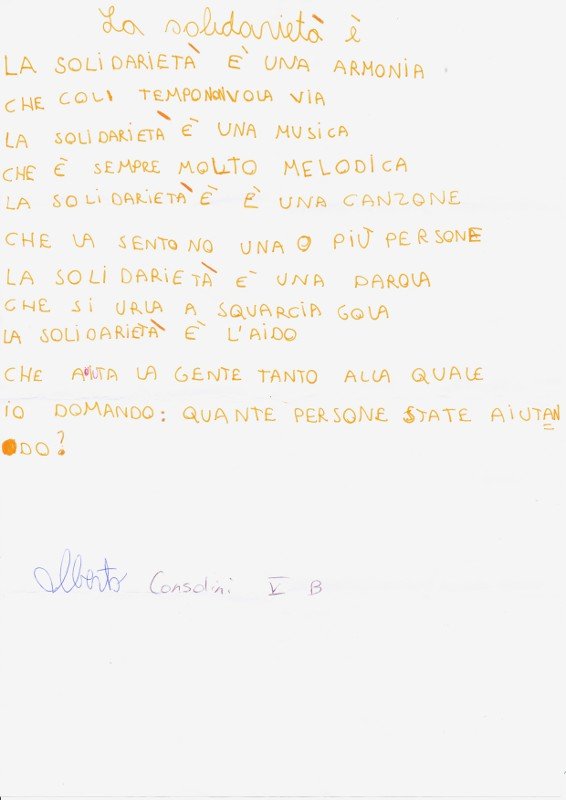 La solidarietà è
LA SOLIDARIETÀ È UNA ARMONIA
CHE COLI TEMPO NON VOLA VIA
LA SOLIDARIETÀ È UNA MUSICA
CHE È SEMPRE MOLTO MELODICA
LA SOLIDARIETÀ È È UNA CANZONE
CHE LA SENTONO UNA O PIÙ PERSONE
LA SOLIDARIETÀ È UNA PAROLA
CHE SI URLA A SQUARCIA GOLA
LA SOLIDARIETÀ È L'AIDO
CHE AIUTA LA GENTE TANTO ALLA QUALE
IO DOMANDO: QUANTE PERSONE STATE AIUTAN
DO?
Alberto Consolini V B